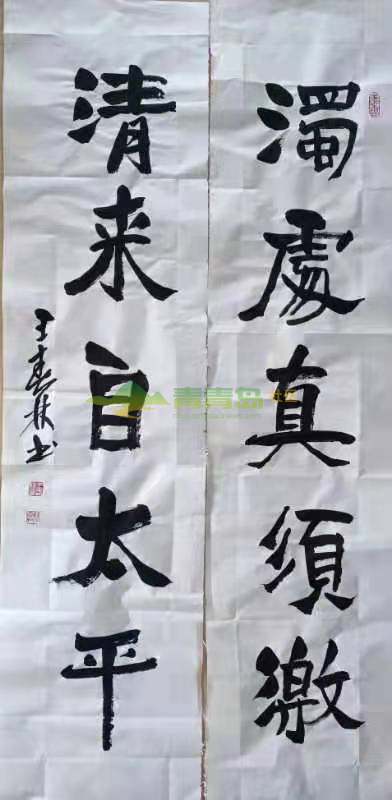 濁處真須激
清来自太平
王春林书
青青岛